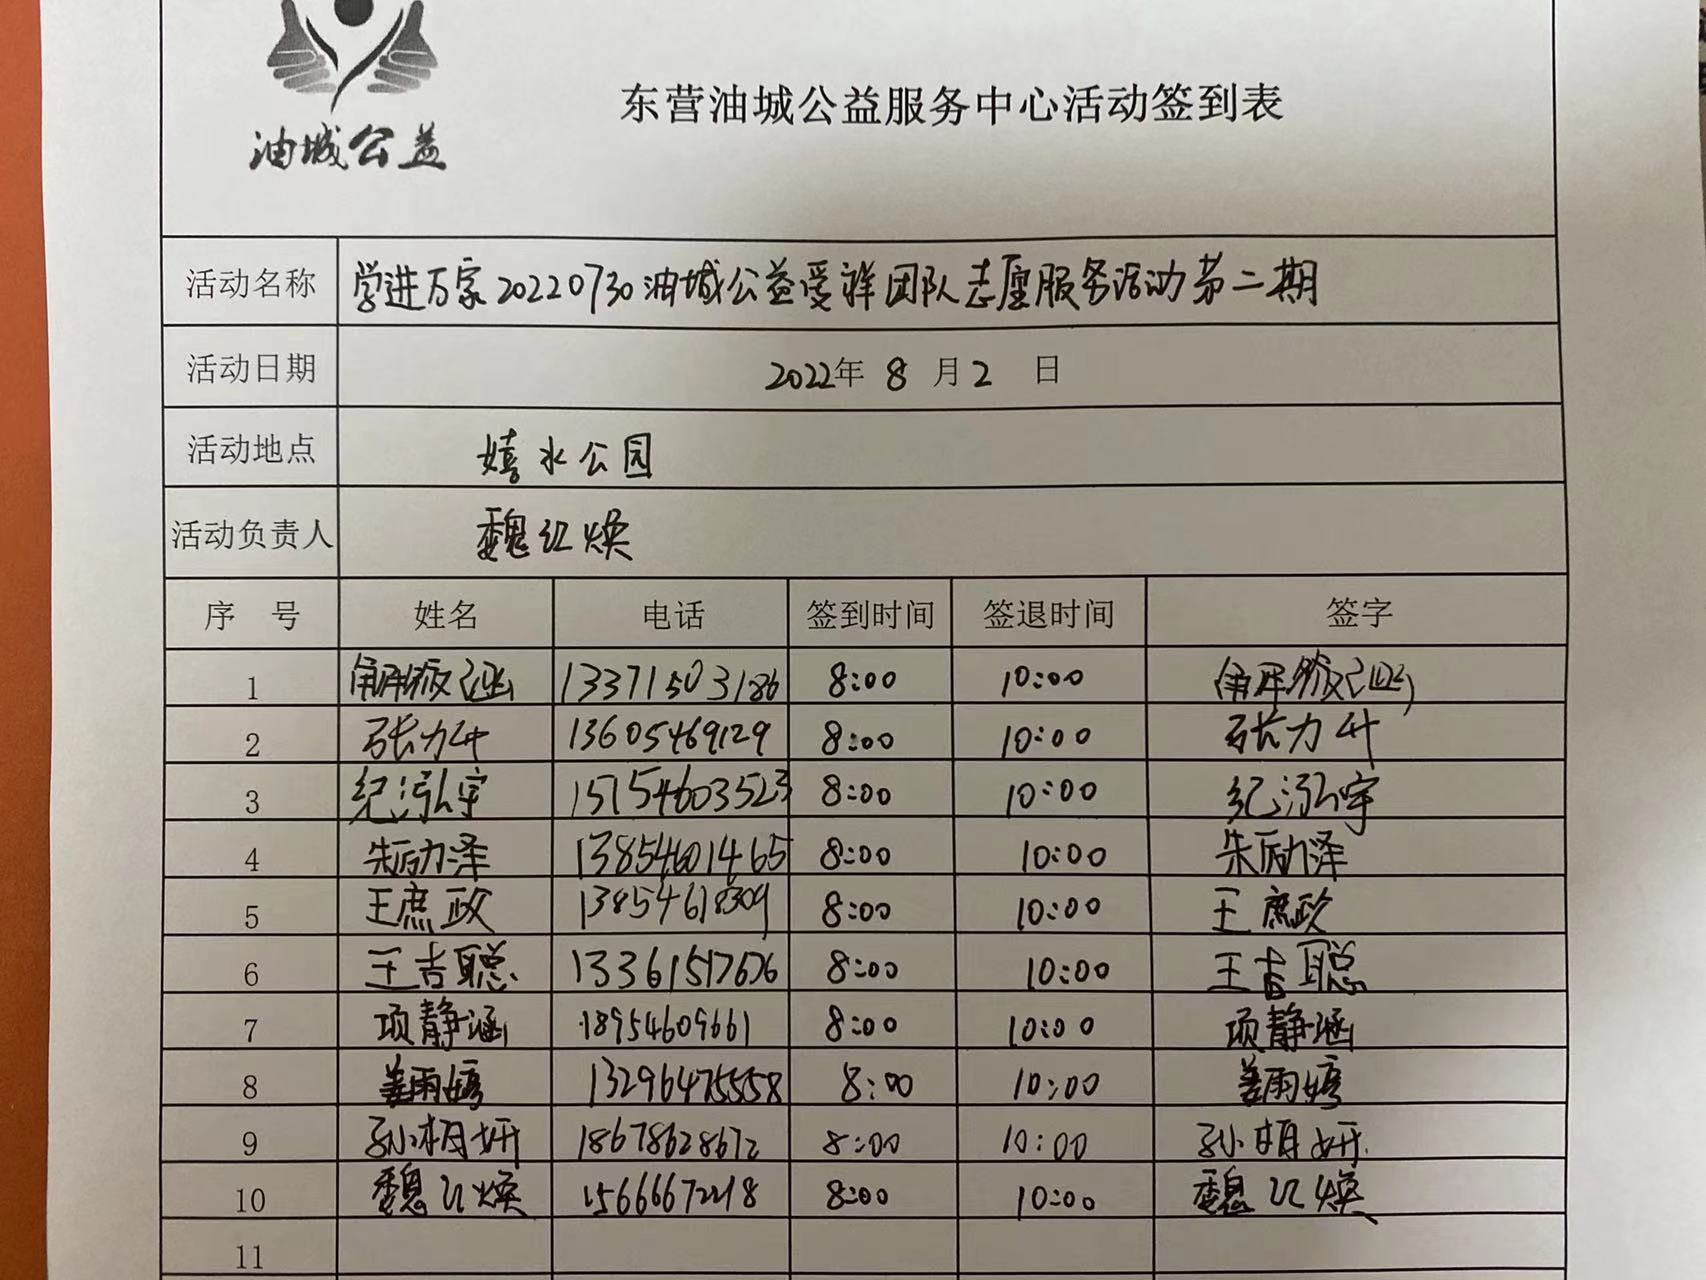 油城公益
东营油城公益服务中心活动签到表
活动名称 学进万家20220730油城公益爱祥团队志愿服务活动第二期
活动日期 2022年 8 月 2 日
活动地点 嬉水公园
活动负责人 魏红焕
序 号 姓名 电话 签到时间 签退时间 签字
1 13371503186 8:00 10:00
2 张力升 13605469129 8:00 10:00 张力升
3 纪泓宇 15754603523 8:00 10:00 纪泓宇
4 朱励泽 13854601465 8:00 10:00 朱励泽
5 王庶政 13854618309 8:00 10:00 王庶政
6 王吉聪 8:00 10:00 王吉聪
7 项静涵 18954609661 8:00 10:00 项静涵
8 姜雨婷 13296475558 8:00 10:00 姜雨婷
9 18678628672 8:00 10:00
10 魏红焕 15666672218 8:00 10:00 魏红焕
11